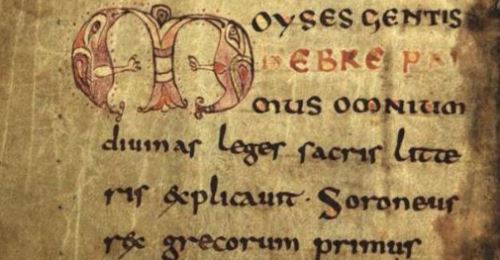 MOYSES GENTIS
HEBRE PRI
MUS OMNIUM
divinas leges sacris litte
ris explicavit · Soroneus
rex grecorum primus